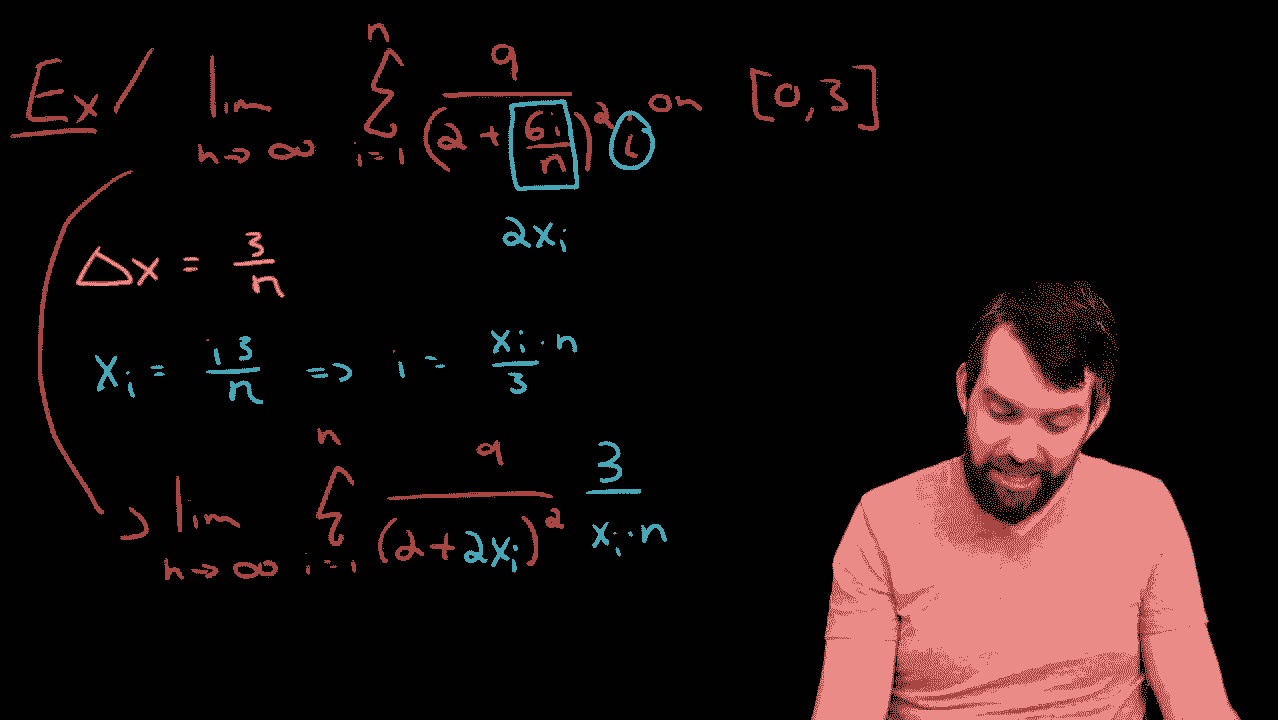 Ex/ lim n→∞ n Σ i=1 9/(2 + 6i/n)² i on [0,3]
2xᵢ
Δx = 3/n
xᵢ = i3/n ⇒ i = xᵢ·n/3
lim n→∞ n Σ i=1 9/(2+2xᵢ)² 3/xᵢ·n